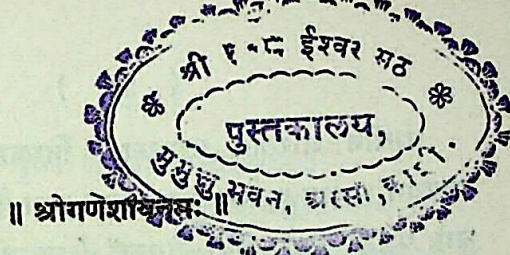 श्री १०८ ईश्वर मठ
पुस्तकालय,
मुमुक्षु भवन, अस्सी, काशी.
॥ श्रीगणेशायनमः ॥